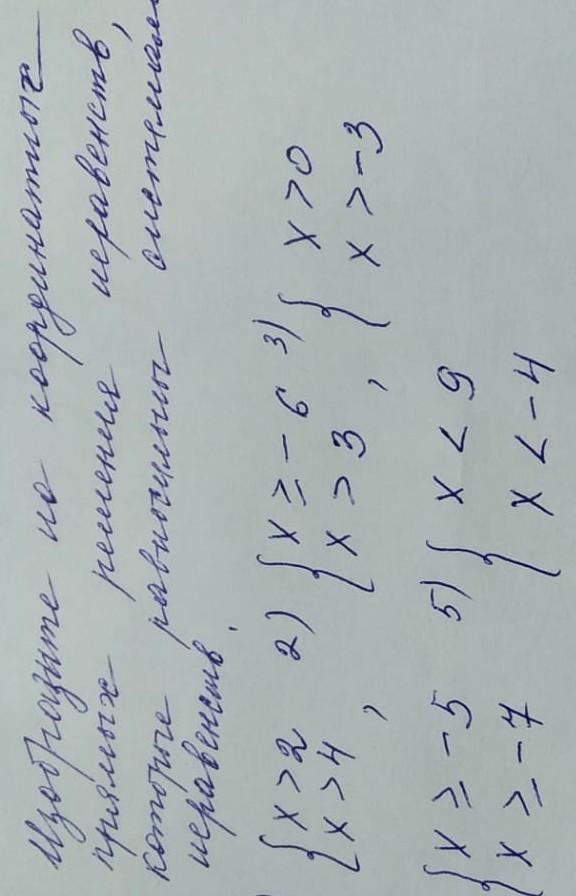 Изобразите на координатных
прямых решения неравенств,
которые равносильны системам
неравенств.
{ x > 2 2) { x ≥ -6 3) { x > 0
x > 4 , x > 3 , x > -3
{ x ≥ -5 5) { x < 9
x ≥ -7 x < -4